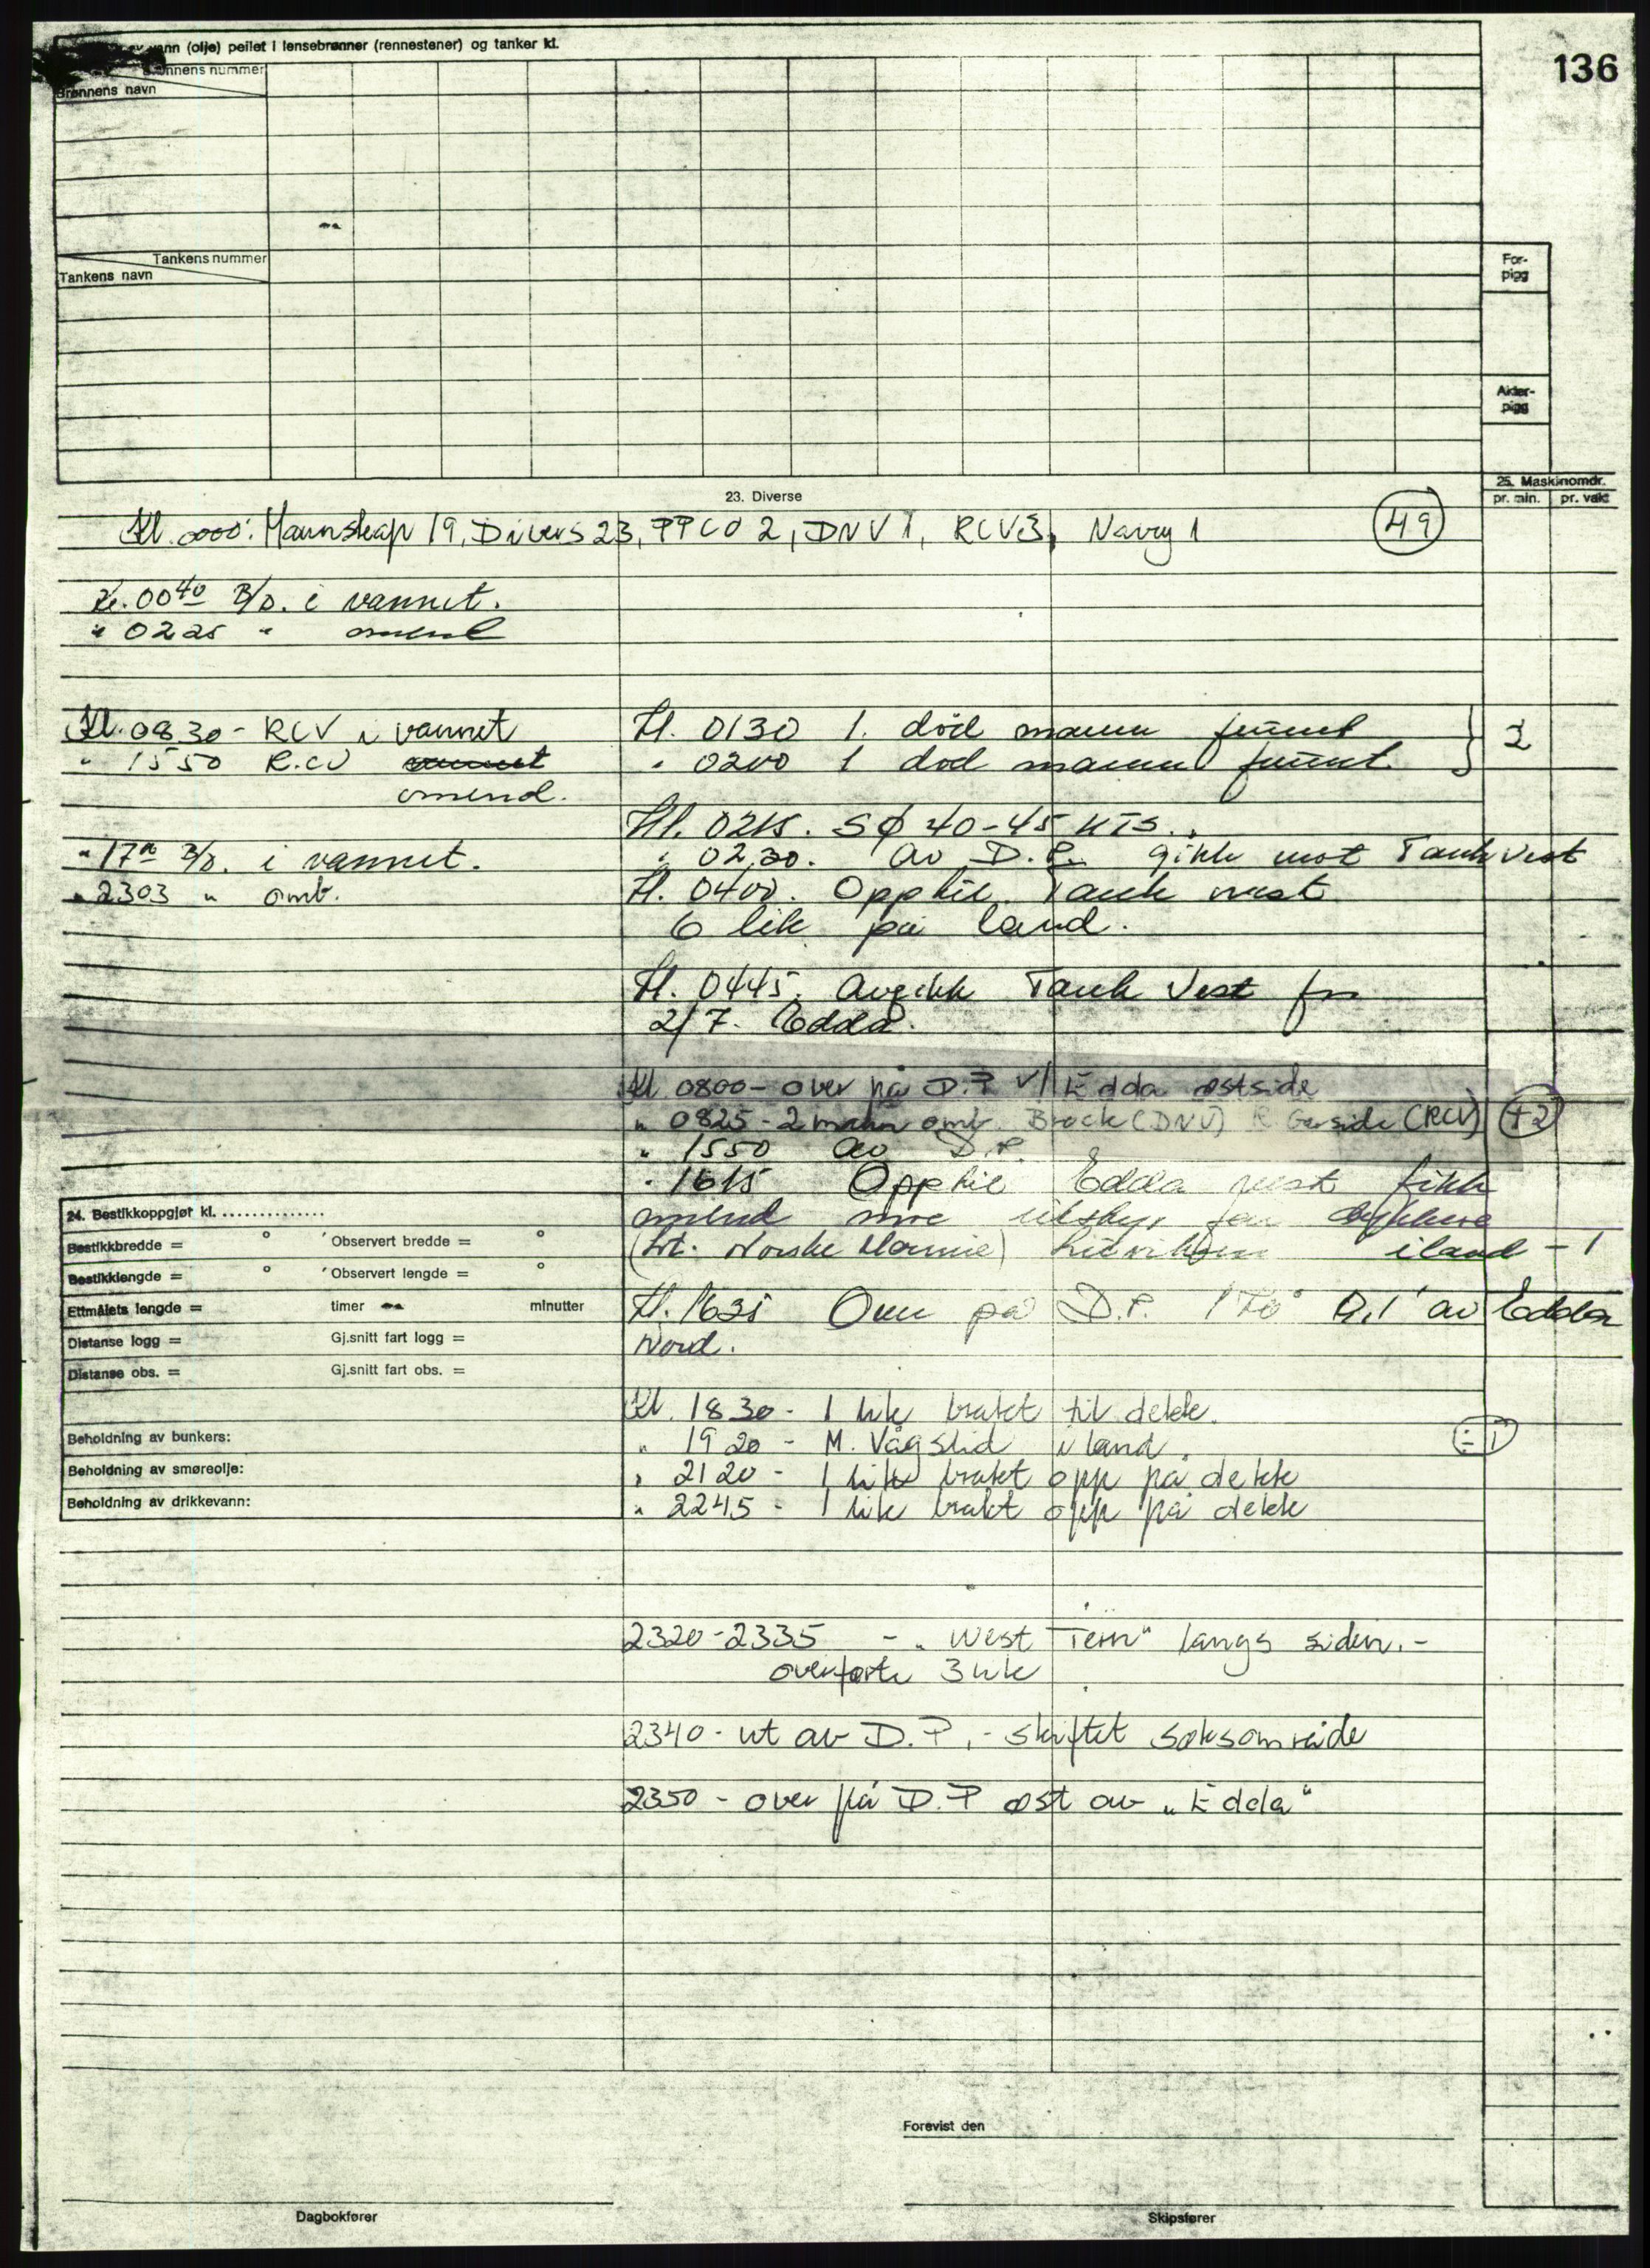 136
vann (olje) peilet i lensebrønner (rennestener) og tanker kl.
Brønnens nummer
Brønnens navn
Tankens nummer
Tankens navn
For-
pigg
Akter-
pigg
23. Diverse
25. Maskinomdr.
pr. min. pr. vakt
Kl. 0000: Mannskap 19, Divers 23, PPCO 2, DNV 1, RCV 3, Navy 1 49
Kl. 0040 B/D. i vannet.
" 0225 " ombord
Kl. 0830 - RCV i vannet
" 1550 R.CV vannet
ombord.
" 17 B/D. i vannet.
" 2303 " omb.
Kl. 0130 1. død mann funnet
" 0200 1 død mann funnet } 2
Kl. 0215. SØ 40-45 KTS.
" 0230. av D.P. gikk mot Tank Vest
Kl. 0400. Opphie. Tank vest
6 lik på land.
Kl. 0445. Avgikk Tank Vest for
2/7. Edda.
Kl 0800 - over på D.P v/ Edda østside
" 0825 - 2 mann omb. Brock (DNV) R Garside (RCV) +2
" 1550 av D.P.
" 1615 Opphie Edda vest fikk
ombord noe utstyr for dykkere
(Lt. Norske Marine) iland - 1
Kl. 1635 Over på D.P. 170° 0,1' av Edda
Nord.
Kl. 1830 - 1 lik brakt til dekk.
" 1920 - M. Vågslid i land. ÷ 1
" 2120 - 1 lik brakt opp på dekk
" 2245 - 1 lik brakt opp på dekk
2320 - 2335 - "West Tern" langs siden. -
overførte 3 lik
2340 - ut av D.P. - skiftet søksområde
2350 - over på D.P øst av "Edda"
24. Bestikkoppgjør kl. ..............
Bestikkbredde = ° ' Observert bredde = °
Bestikklengde = ° ' Observert lengde = °
Ettmålets lengde = timer minutter
Distanse logg = Gj.snitt fart logg =
Distanse obs. = Gj.snitt fart obs. =
Beholdning av bunkers:
Beholdning av smøreolje:
Beholdning av drikkevann:
Forevist den
Dagbokfører
Skipsfører